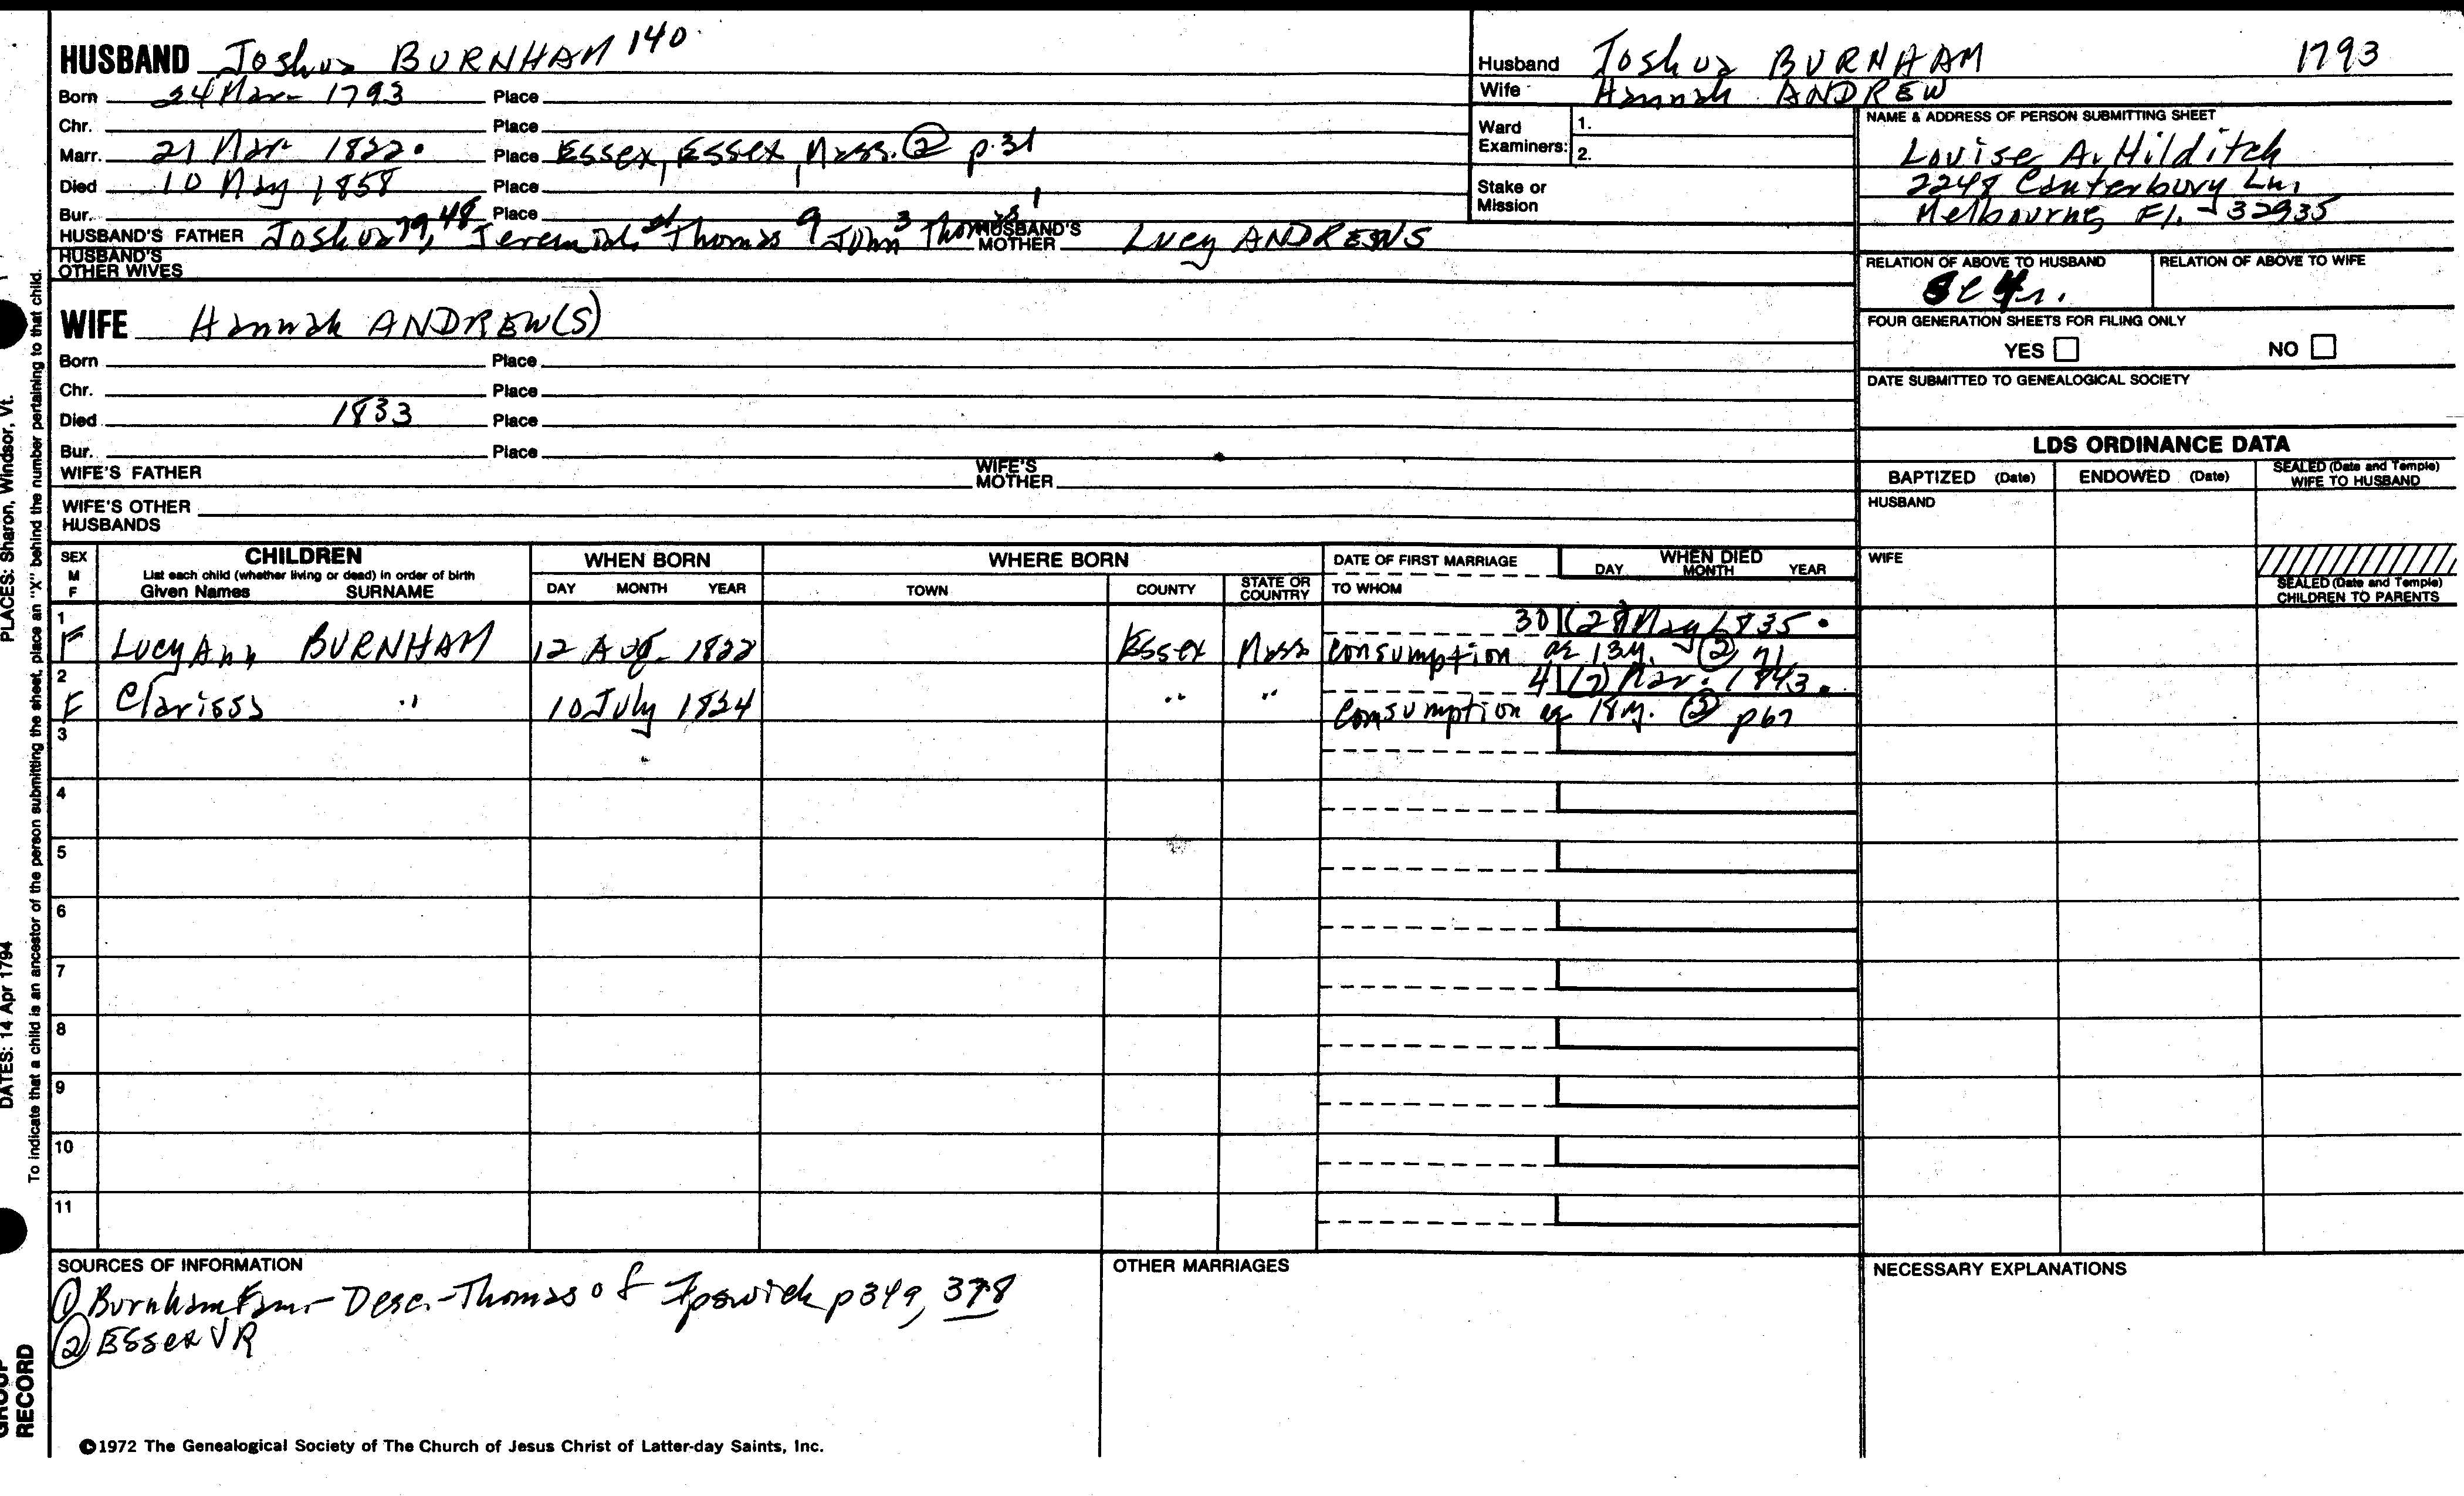 HUSBAND Joshua BURNHAM 140
Born 24 Mar 1793 Place
Chr. Place
Marr. 21 Mar 1822. Place Essex, Essex, Mass. ② p.31
Died 10 May 1858 Place
Bur. Place
HUSBAND'S FATHER Joshua 79, 48 Jeremiah Thomas 9 John 3 Thomas 1 HUSBAND'S MOTHER Lucy ANDREWS
HUSBAND'S OTHER WIVES
WIFE Hannah ANDREW(S)
Born Place
Chr. Place
Died 1833 Place
Bur. Place
WIFE'S FATHER WIFE'S MOTHER
WIFE'S OTHER HUSBANDS
Husband Joshua BURNHAM 1793
Wife Hannah ANDREW
Ward Examiners: 1.
2.
Stake or Mission
NAME & ADDRESS OF PERSON SUBMITTING SHEET
Louise A. Hilditch
2248 Canterbury Ln.
Melbourne, Fl. - 32935
RELATION OF ABOVE TO HUSBAND RELATION OF ABOVE TO WIFE
FOUR GENERATION SHEETS FOR FILING ONLY
YES NO
DATE SUBMITTED TO GENEALOGICAL SOCIETY
LDS ORDINANCE DATA
BAPTIZED (Date) ENDOWED (Date) SEALED (Date and Temple) WIFE TO HUSBAND
HUSBAND
WIFE
SEALED (Date and Temple) CHILDREN TO PARENTS
SEX M F CHILDREN WHEN BORN WHERE BORN DATE OF FIRST MARRIAGE WHEN DIED
List each child (whether living or dead) in order of birth
Given Names SURNAME DAY MONTH YEAR TOWN COUNTY STATE OR COUNTRY TO WHOM DAY MONTH YEAR
1 30 (28) May 1835.
F Lucy Ann BURNHAM 12 Aug 1822 Essex Mass consumption ae 13y. ② 71
2 4 (7) Mar. 1843.
F Clarissa " 10 July 1824 " " consumption ae 18y. ② p67
3
4
5
6
7
8
9
10
11
SOURCES OF INFORMATION
① Burnham Fam - Desc. - Thomas of Ipswich p349, 378
② Essex VR
OTHER MARRIAGES
NECESSARY EXPLANATIONS
©1972 The Genealogical Society of The Church of Jesus Christ of Latter-day Saints, Inc.
PLACES: Sharon, Windsor, Vt.
DATES: 14 Apr 1794
To indicate that a child is an ancestor of the person submitting the sheet, place an "X" behind the number pertaining to that child.
GROUP
RECORD